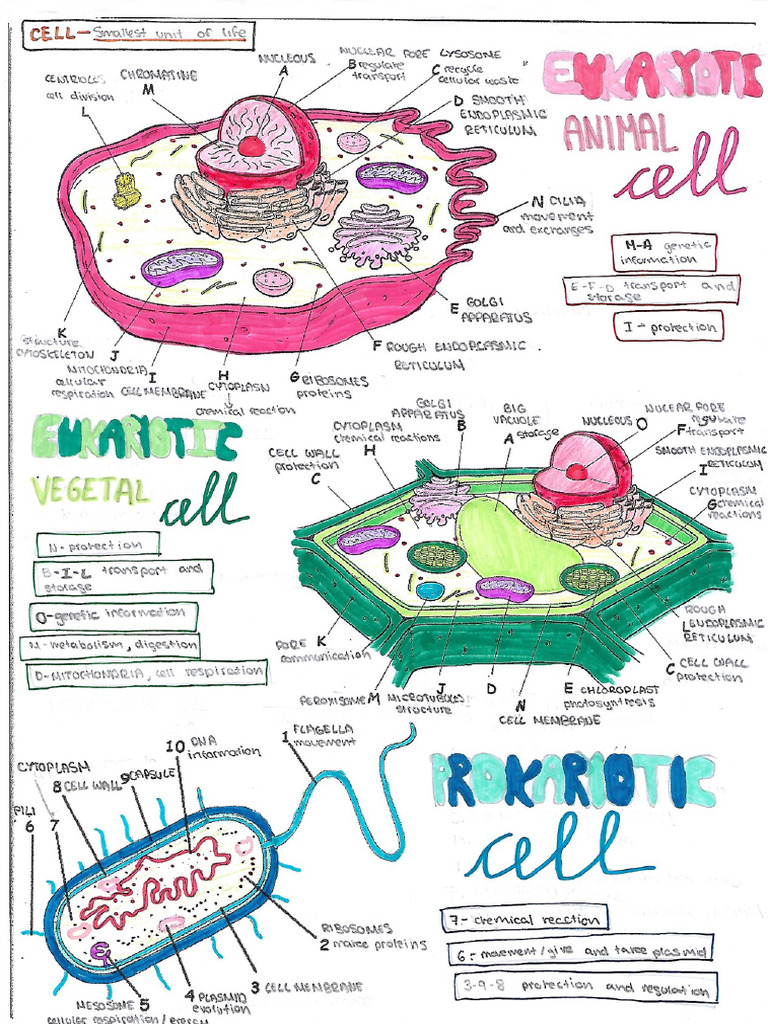 CELL - Smallest unit of life
EUKARYOTIC
ANIMAL
cell
NUCLEOUS
A
NUCLEAR PORE
B regulate
transport
LYSOSOME
C recycle
cellular waste
D SMOOTH
ENDOPLASMIC
RETICULUM
CENTRIOLES
cell division
L
CHROMATINE
M
N CILIA
movement
and exchanges
M-A genetic
information
E-F-D transport and
storage
I - protection
E GOLGI
APPARATUS
F ROUGH ENDOPLASMIC
RETICULUM
G RIBOSOMES
proteins
H
CYTOPLASM
chemical reaction
I
CELL MEMBRANE
J
MITOCHONDRIA
cellular
respiration
K
structure
CYTOSKELETON
EUKARYOTIC
VEGETAL
cell
N-protection
B-I-L transport and
storage
O-genetic information
M-metabolism, digestion
D-MITOCHONDRIA, cell respiration
CELL WALL
protection
C
CYTOPLASM
chemical reactions
H
GOLGI
APPARATUS
B
BIG
VACUOLE
A storage
NUCLEOUS O
NUCLEAR PORE
regulate
F transport
SMOOTH ENDOPLASMIC
I RETICULUM
CYTOPLASM
G chemical
reactions
ROUGH
L ENDOPLASMIC
RETICULUM
C CELL WALL
protection
E CHLOROPLAST
photosyntesis
N
CELL MEMBRANE
D
J
MICROTUBULES
structure
PEROXISOME M
PORE K
communication
PROKARIOTIC
cell
1 FLAGELLA
movement
10 DNA
information
9 CAPSULE
8 CELL WALL
CYTOPLASM
7
PILI
6
RIBOSOMES
2 make proteins
3 CELL MEMBRANE
4 PLASMID
evolution
MESOSOME 5
cellular respiration/energy
7- chemical reaction
6- movement/give and take plasmid
3-9-8 protection and regulation